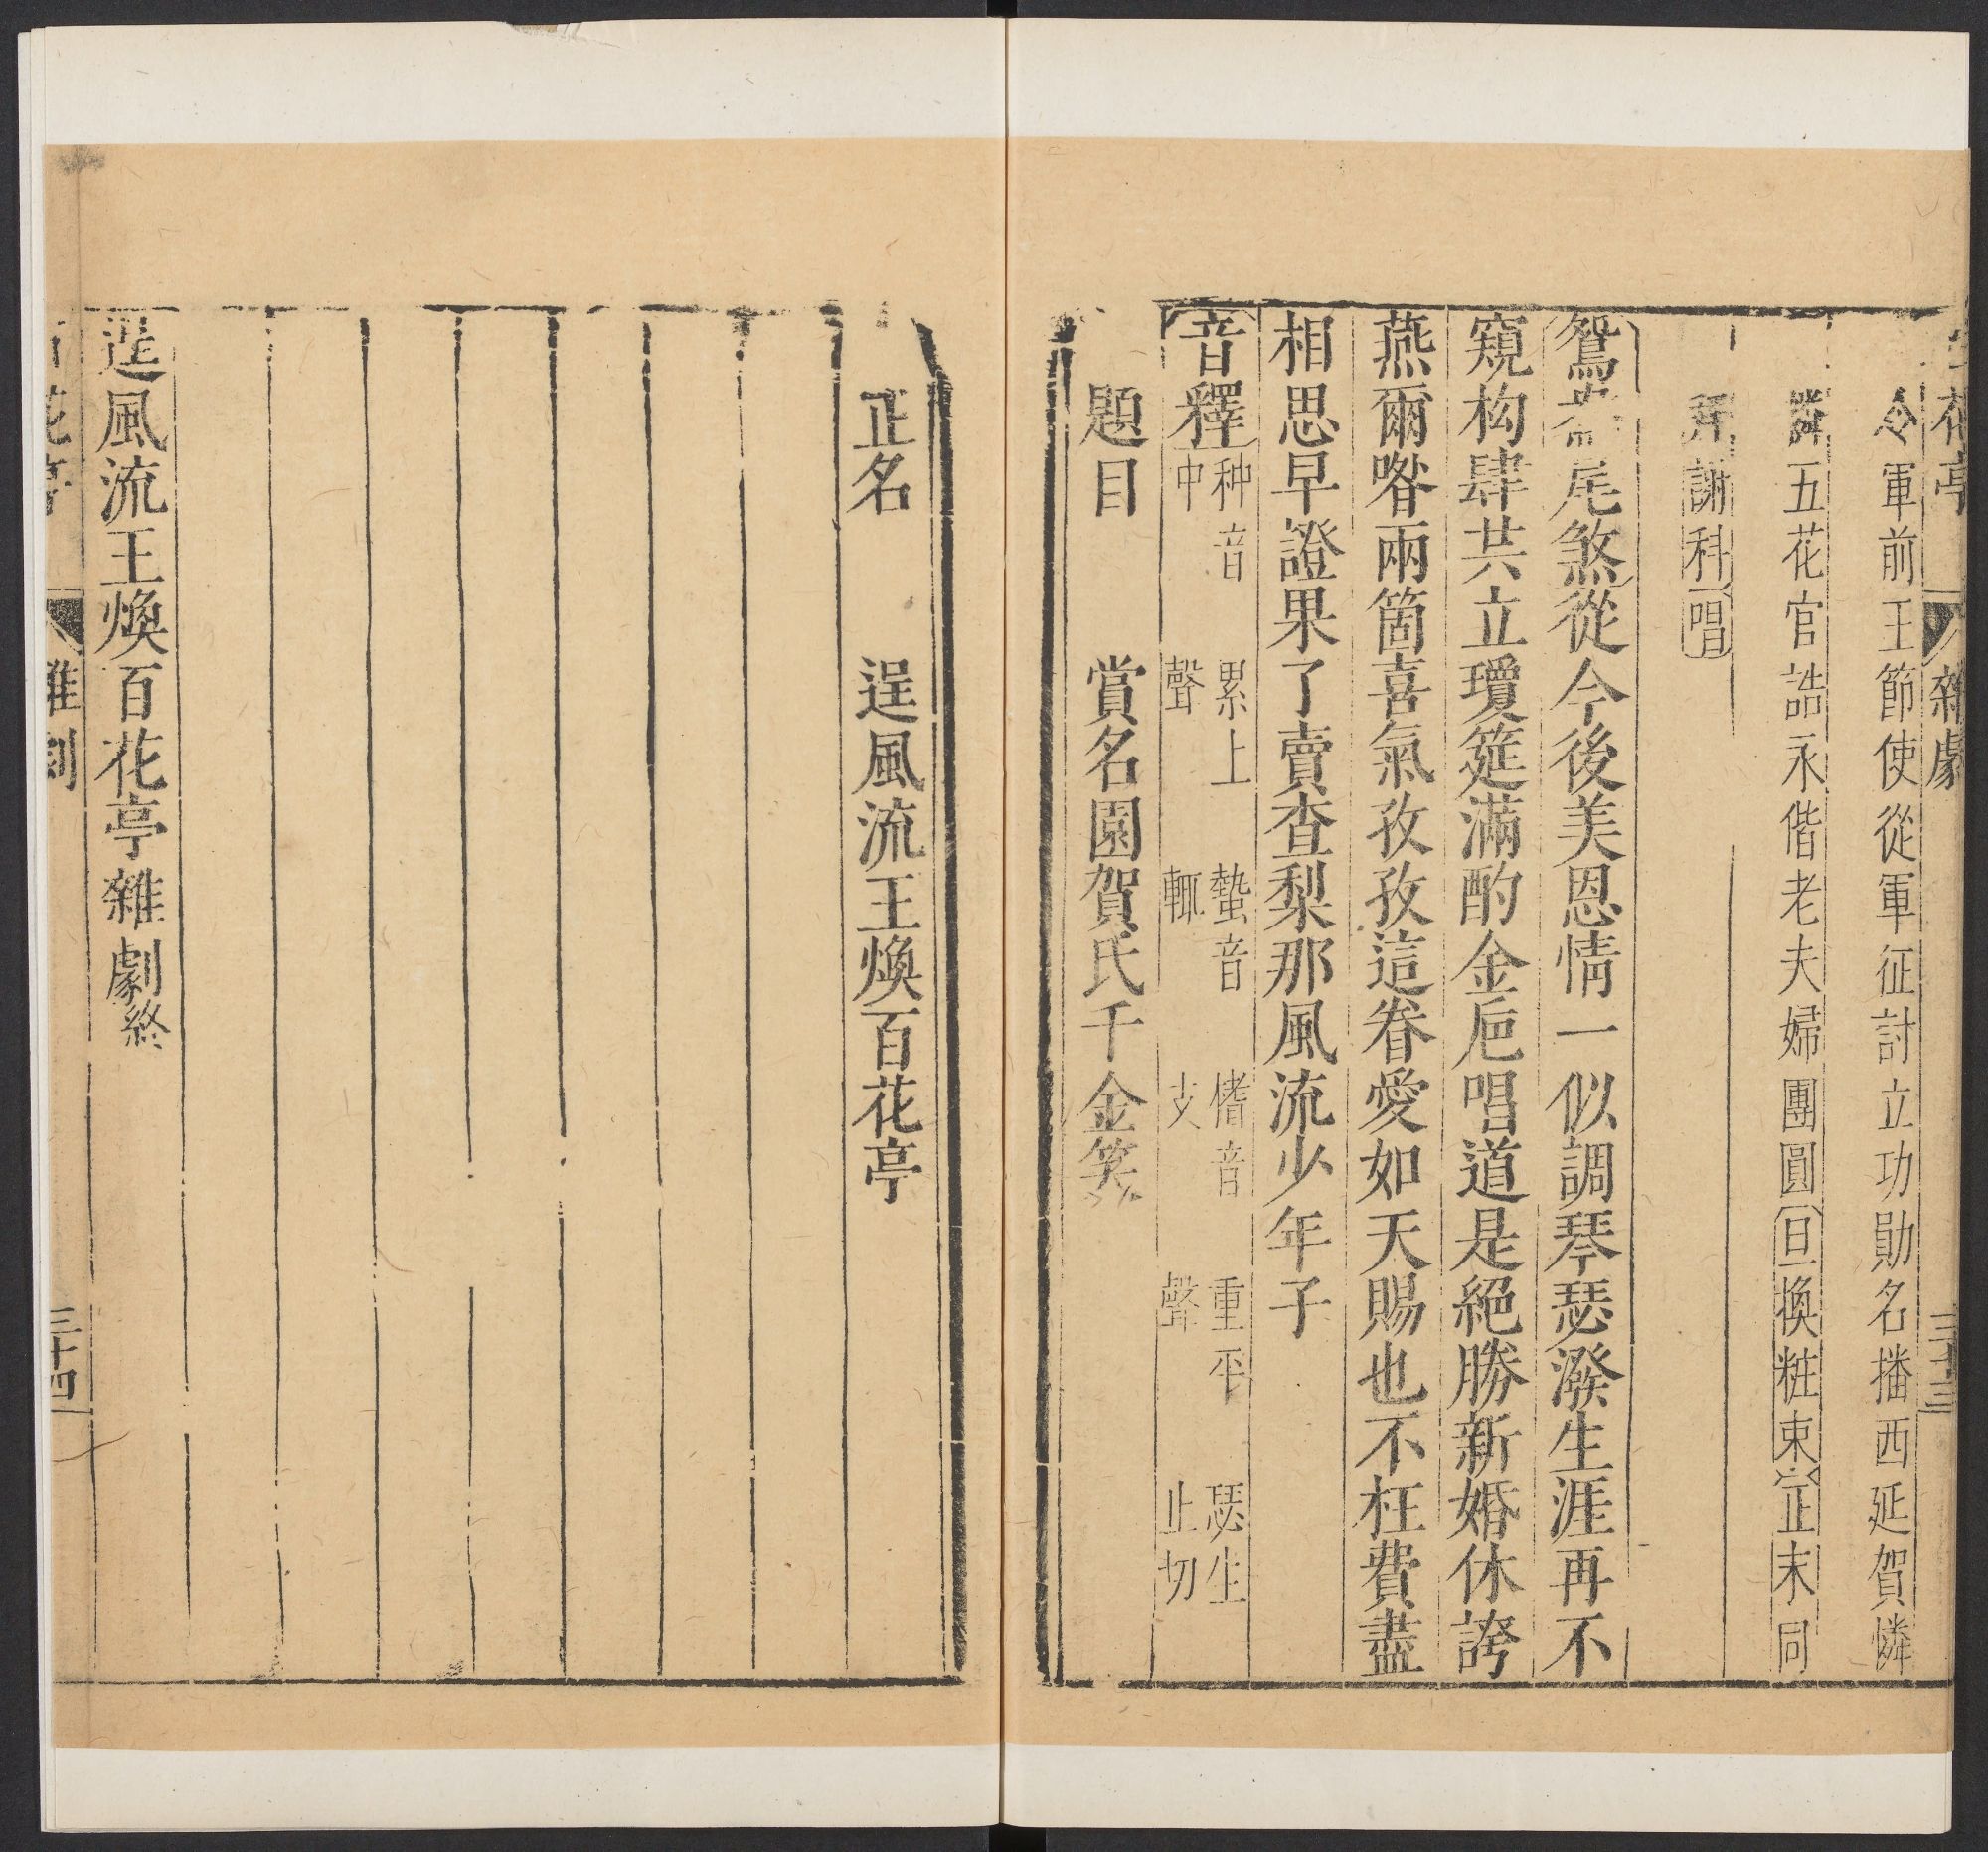 花亭 雜劇 三十三
令軍前王節使從軍征討立功勛名播西延賀憐
憐五花官誥永偕老夫婦團圓旦換粧束正末同
拜謝科唱
鴛鴦尾煞從今後美恩情一似調琴瑟潑生涯再不
窺构肆共立瓊筵滿酌金卮唱道是絕勝新婚休誇
燕爾喒兩箇喜氣孜孜這眷愛如天賜也不枉費盡
相思早證果了賣查梨那風流少年子
音釋 种音中 累上聲 蟄音輒 僐音支 重平聲 瑟生止切
題目 賞名園賀氏千金笑
正名 逞風流王煥百花亭
逞風流王煥百花亭雜劇終
花亭 雜劇 三十四